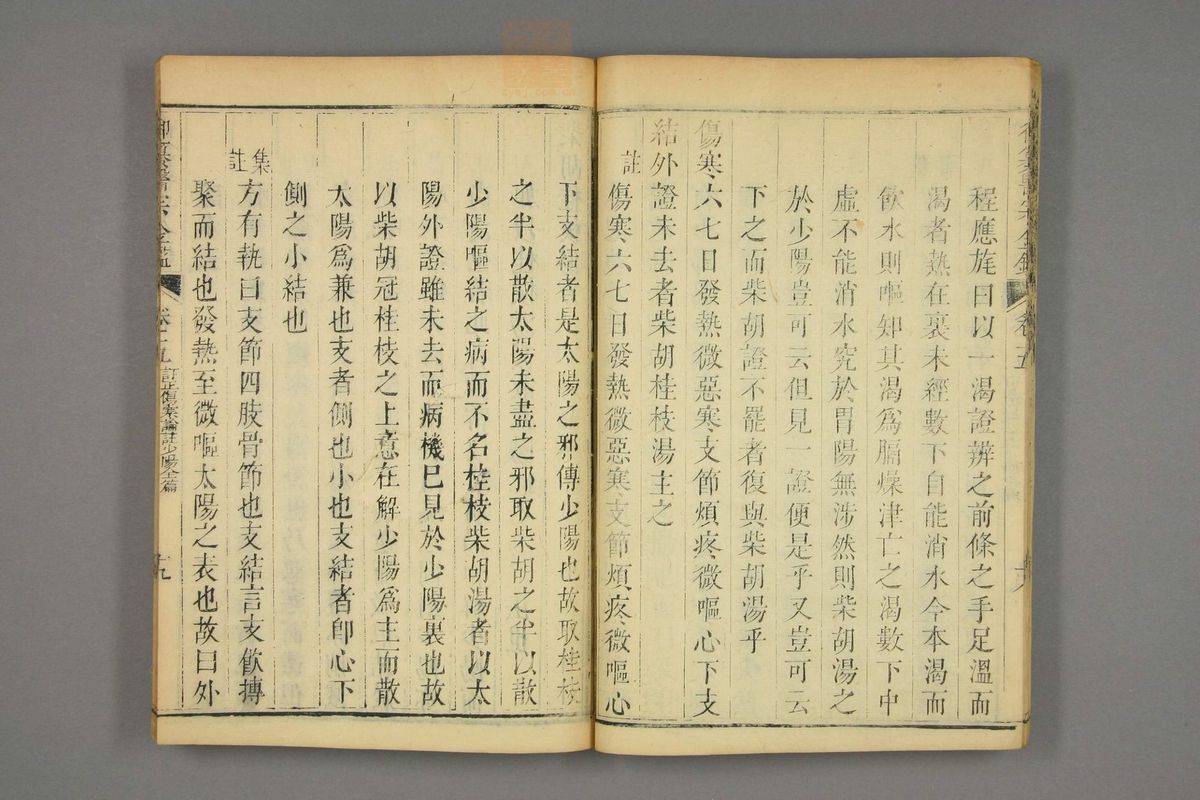 程應旄曰以一渴證辨之前條之手足溫而
渴者熱在裏未經數下自能消水今本渴而
飲水則嘔知其渴爲膈燥津亡之渴數下中
虛不能消水究於胃陽無涉然則柴胡湯之
於少陽豈可云但見一證便是乎又豈可云
下之而柴胡證不罷者復與柴胡湯乎
傷寒六七日發熱微惡寒支節煩疼微嘔心下支
結外證未去者柴胡桂枝湯主之
註傷寒六七日發熱微惡寒支節煩疼微嘔心
下支結者是太陽之邪傳少陽也故取桂枝
之半以散太陽未盡之邪取柴胡之半以散
少陽嘔結之病而不名桂枝柴胡湯者以太
陽外證雖未去而病機已見於少陽裏也故
以柴胡冠桂枝之上意在解少陽爲主而散
太陽爲兼也支者側也小也支結者卽心下
側之小結也
集註方有執曰支節四肢骨節也支結言支飮摶
聚而結也發熱至微嘔太陽之表也故曰外
訂傷寒論註少陽全篇